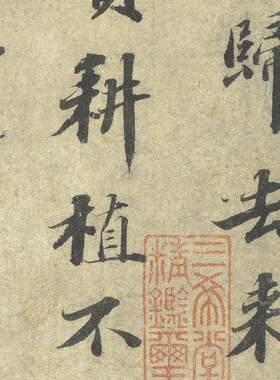 歸去来
耕植不
三希堂
精鑑璽